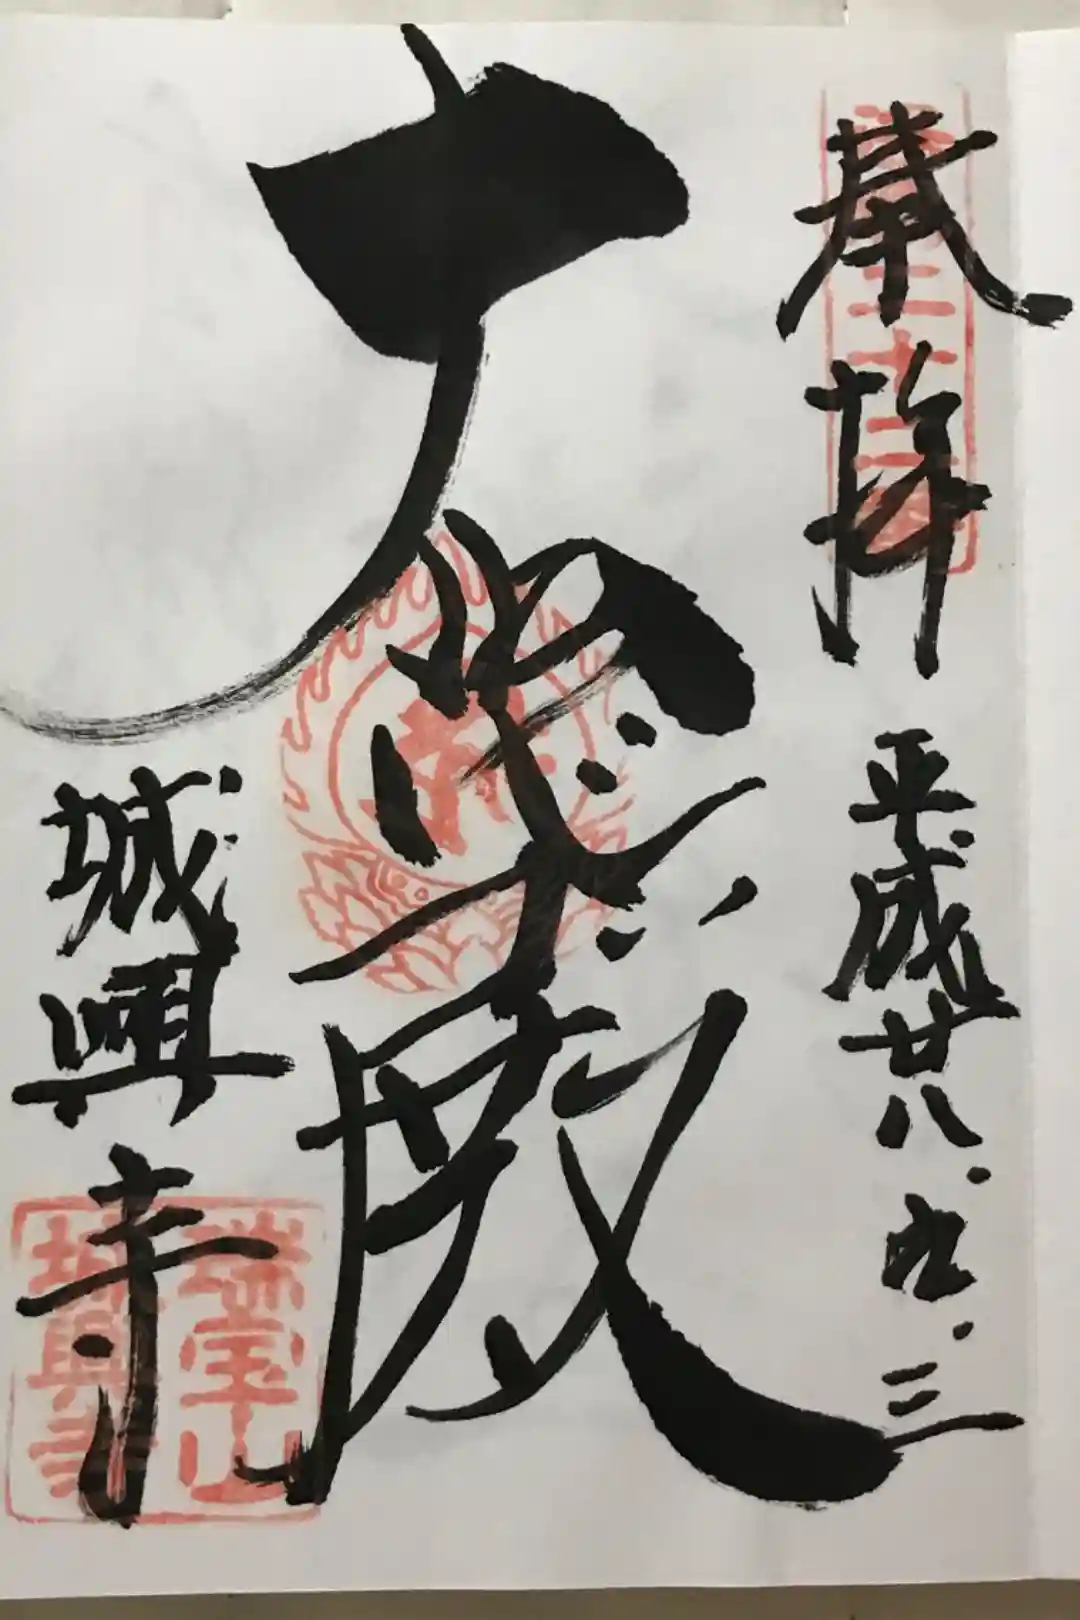 奉拝
平成廿八.九.三
大悲殿
城興寺
瑞宝山
城興寺